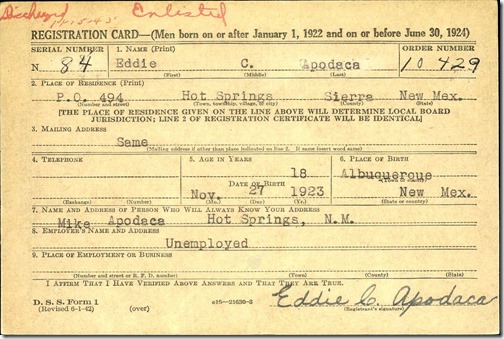 Discharged Enlisted
REGISTRATION CARD—(Men born on or after January 1, 1922 and on or before June 30, 1924)
SERIAL NUMBER 1. NAME (Print) ORDER NUMBER
N 84 Eddie C. Apodaca 10429
(First) (Middle) (Last)
2. PLACE OF RESIDENCE (Print)
P.O. 494 Hot Springs Sierra New Mex.
(Number and street) (Town, township, village, or city) (County) (State)
[THE PLACE OF RESIDENCE GIVEN ON THE LINE ABOVE WILL DETERMINE LOCAL BOARD
JURISDICTION; LINE 2 OF REGISTRATION CERTIFICATE WILL BE IDENTICAL]
3. MAILING ADDRESS
Same
(Mailing address if other than place indicated on line 2. If same insert word same)
4. TELEPHONE 5. AGE IN YEARS 6. PLACE OF BIRTH
18 Albuquerque
DATE OF BIRTH (Town or county)
Nov. 27 1923 New Mex.
(Exchange) (Number) (Mo.) (Day) (Yr.) (State or country)
7. NAME AND ADDRESS OF PERSON WHO WILL ALWAYS KNOW YOUR ADDRESS
Mike Apodaca Hot Springs, N.M.
8. EMPLOYER'S NAME AND ADDRESS
Unemployed
9. PLACE OF EMPLOYMENT OR BUSINESS
(Number and street or R. F. D. number) (Town) (County) (State)
I AFFIRM THAT I HAVE VERIFIED ABOVE ANSWERS AND THAT THEY ARE TRUE.
D. S. S. Form 1
(Revised 6-1-42) (over) Eddie C. Apodaca
(Registrant's signature)